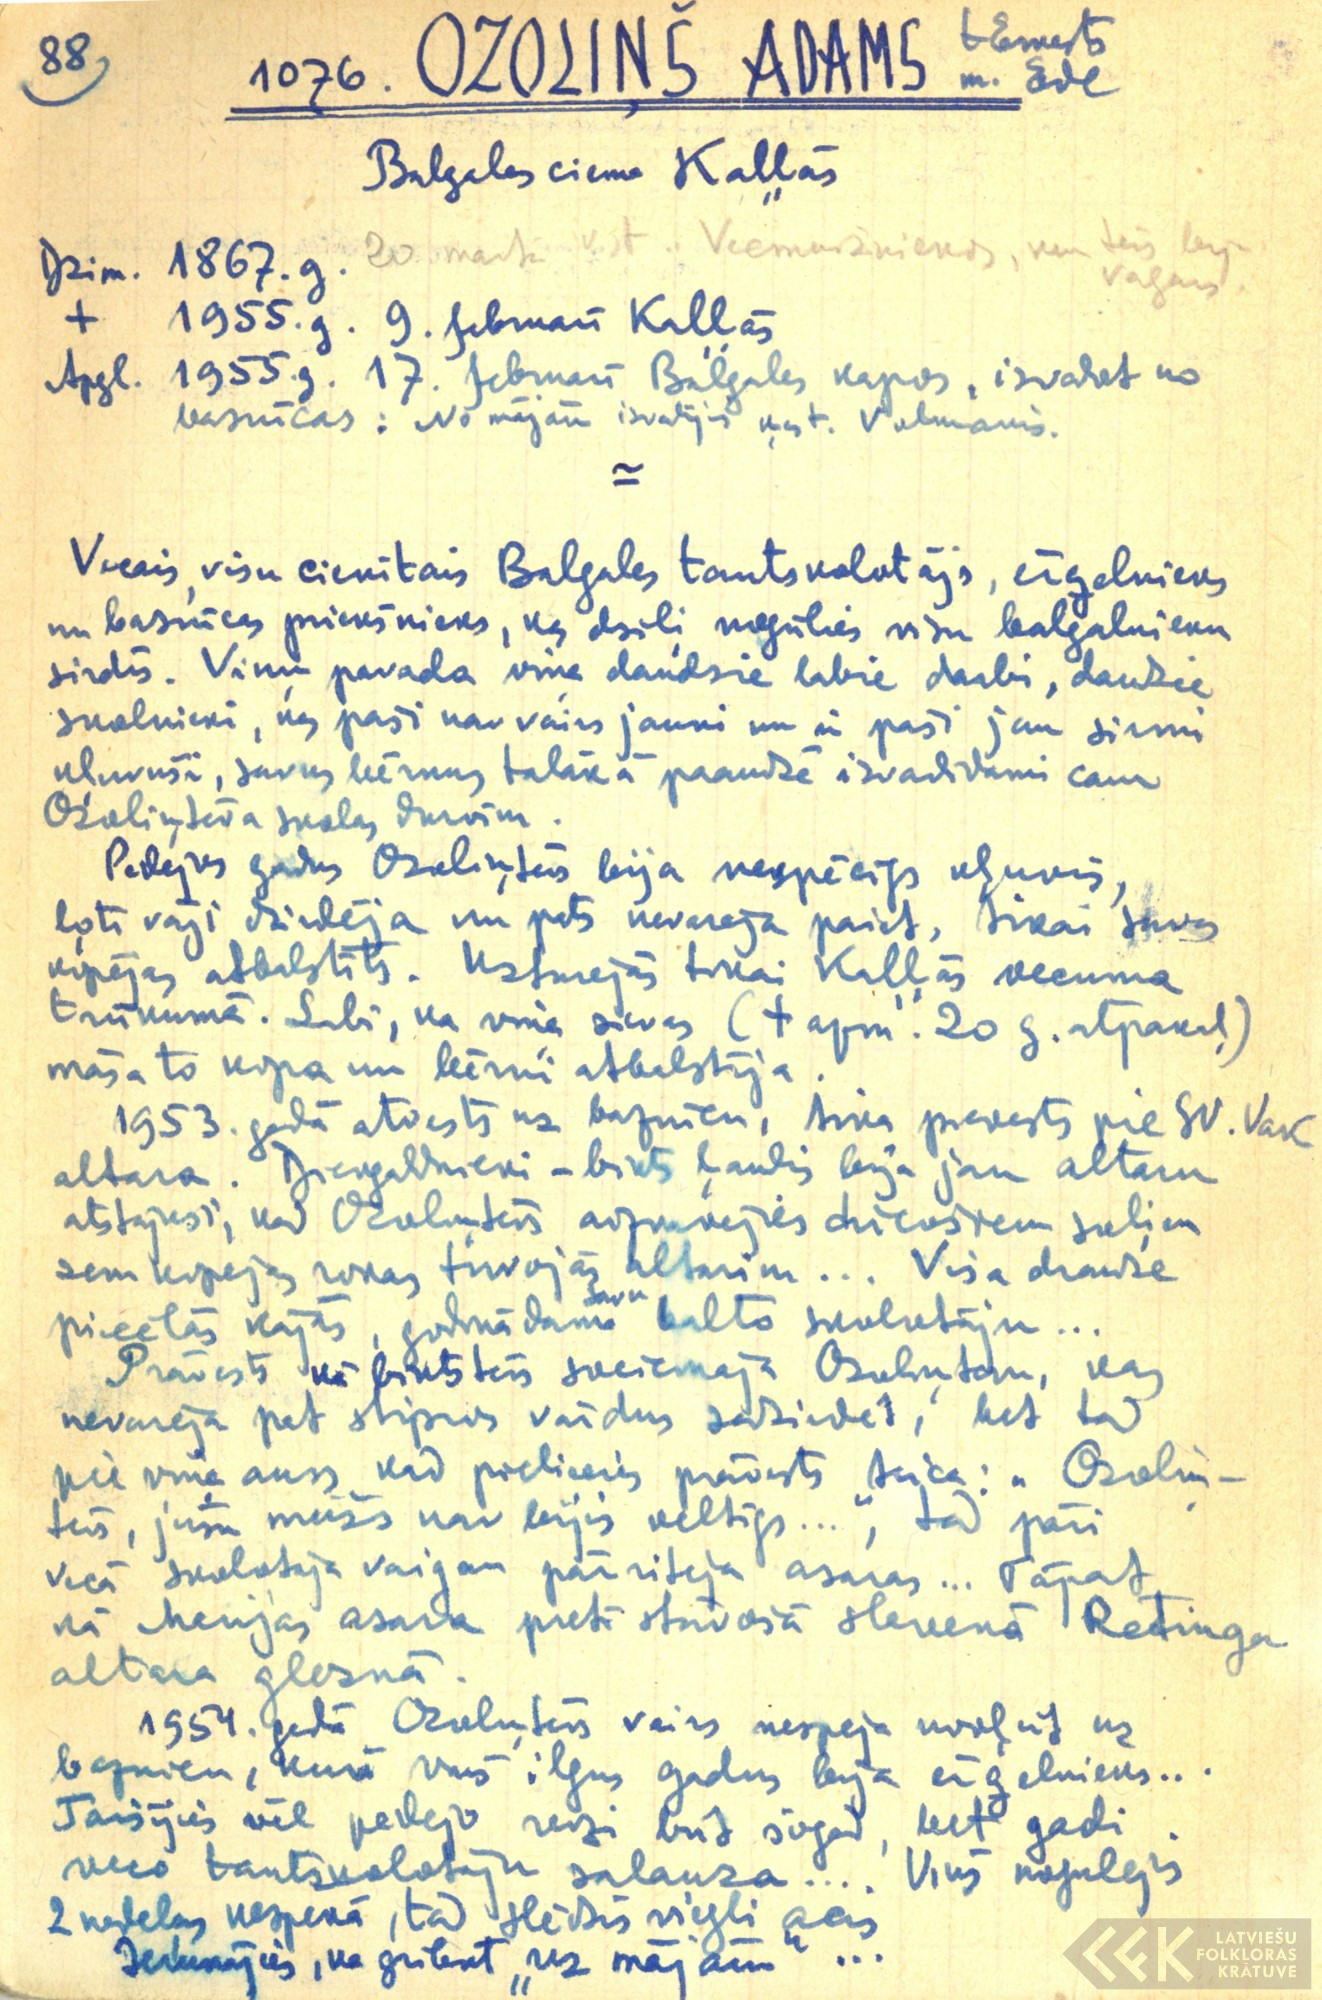 88
1076. OZOLIŅŠ ADAMS t. Ernests
m. Ede
Balgales ciema Kaļļās
Dzim. 1867. g. 20 martā Vecmuižniekos, kur tēvs bij
vagars.
+ 1955. g. 9. februarī Kaļļās
Apgl. 1955. g. 17. februarī Balgales kapos, izvadot no
basnīcas: No mājām izvadījis Valmanis.
=
Vecais, visu cienītais Balgales tautskolotājs, ērģelnieks
un basnīcas priekšnieks, kas dziļi nogūlies visu balgalnieku
sirdīs. Viņu pavada viņa daudzie labie darbi, daudzie
skolnieki, kas paši nav vairs jauni un ir paši jau sirmi
kļuvuši, savus bērnus tālākā paaudzē izvadīdami caur
Ozoliņtēva skolas durvīm.
Pedejos gadus Ozoliņtēvs bija nespēcīgs kļuvis,
ļoti vāji dzirdēja un pats nevareja paiet, tikai savas
kopējas atbalstīts. Uzturejās tikai Kaļļās vecuma
trūkumā. Labi, ka viņa sievas (+ apm. 20 g. atpakaļ)
māsa to kopa un bērni atbalstīja.
1953. gadā atvests uz bazņicu, tika pievests pie SV. Vak
altara. Dievgaldnieki – bikts ļaudis bija jau altaru
atstājuši, kad Ozoliņtēvs aizkavejies drīcošiem soļiem
zem kopejas rokas tuvojās altarim... Visa draudze
piecēlās kājās, godinādama savu balto skolotāju...
Prāvests kā biktstēvs sveicinaja Ozoliņtevu, kas
nevareja pat stipros vārdus sadzirdēt, bet tad
pie viņa auss kad pieliecies prāvests teica: „Ozoliņ-
tēvs, jūsu mūžs nav bijis veltīgs...", tad pāri
vecā skolotaja vaigam pārriteja asaras... Tāpat
kā Marijas asara preti stāvošā slavenā Retinga
altara gleznā.
1954. gadā Ozoliņtēvs vairs nespeja nokļūt uz
bazņicu, kurā viņš ilgus gadus bija ērģelnieks...
Taisījies vēl pedejo reizi būt šogad, bet gadi
veco tautskolotāju salauza.... Viņš nogulejis
2 nedeļas nespekā, tad slēdzis viegli acis
Izrunājies, ka gribot „uz mājām"...
LATVIEŠU
FOLKLORAS
KRĀTUVE